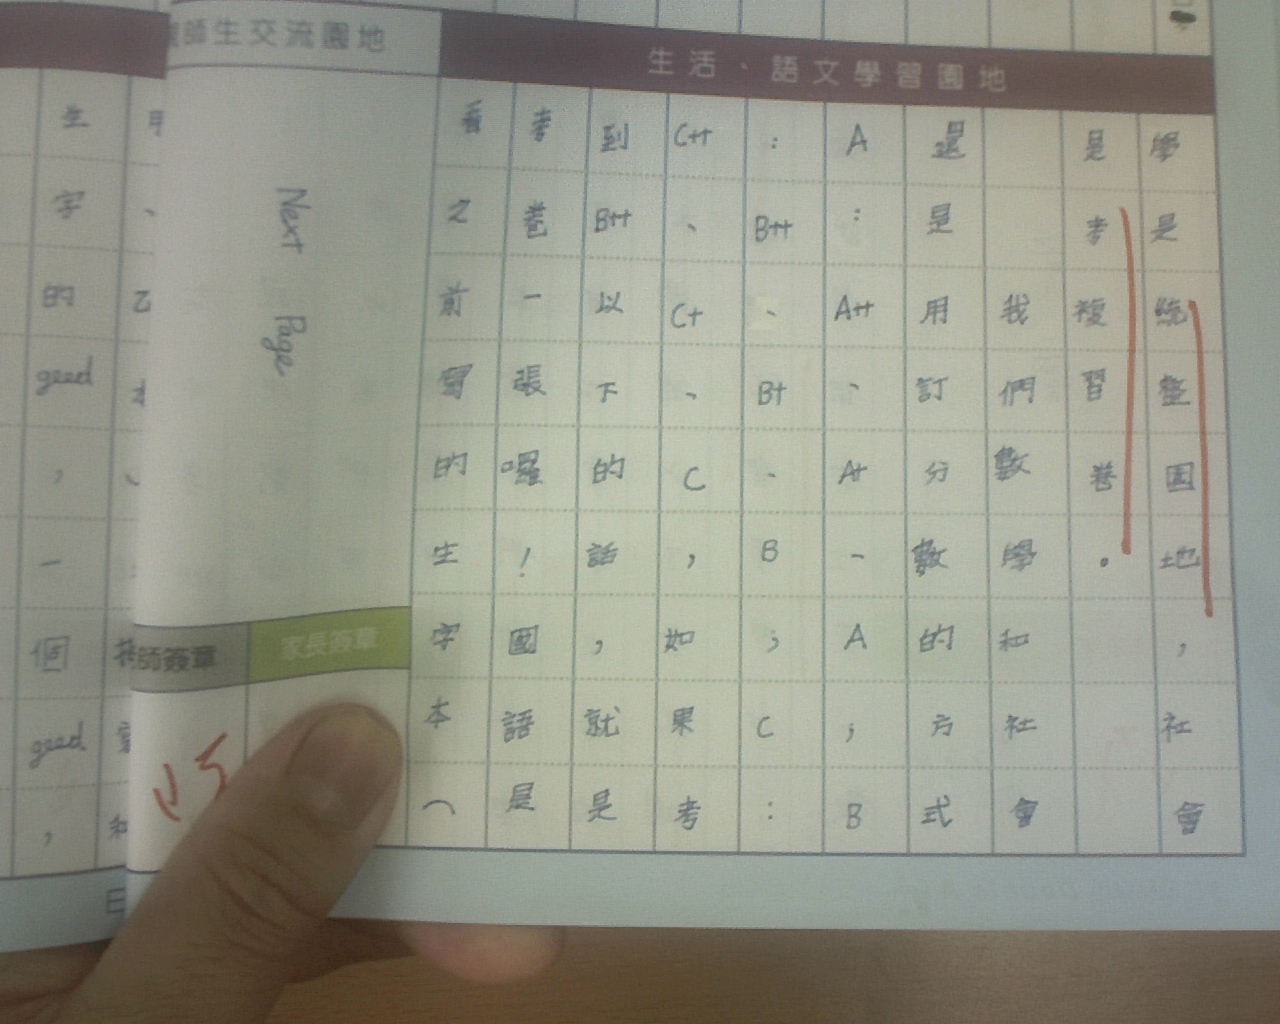 生活、語文學習園地
學是統整國地，社會
是考複習卷。
我們數學和社會
還是用訂分數的方式
A：A++、A+、A；B
：B++、B+、B；C：
C++、C+、C，如果考
到B++以下的話，就是
考卷一張囉！國語是
看之前寫的生字本（
師生交流園地
Next Page
師簽章
家長簽章
生字的good，一個good，